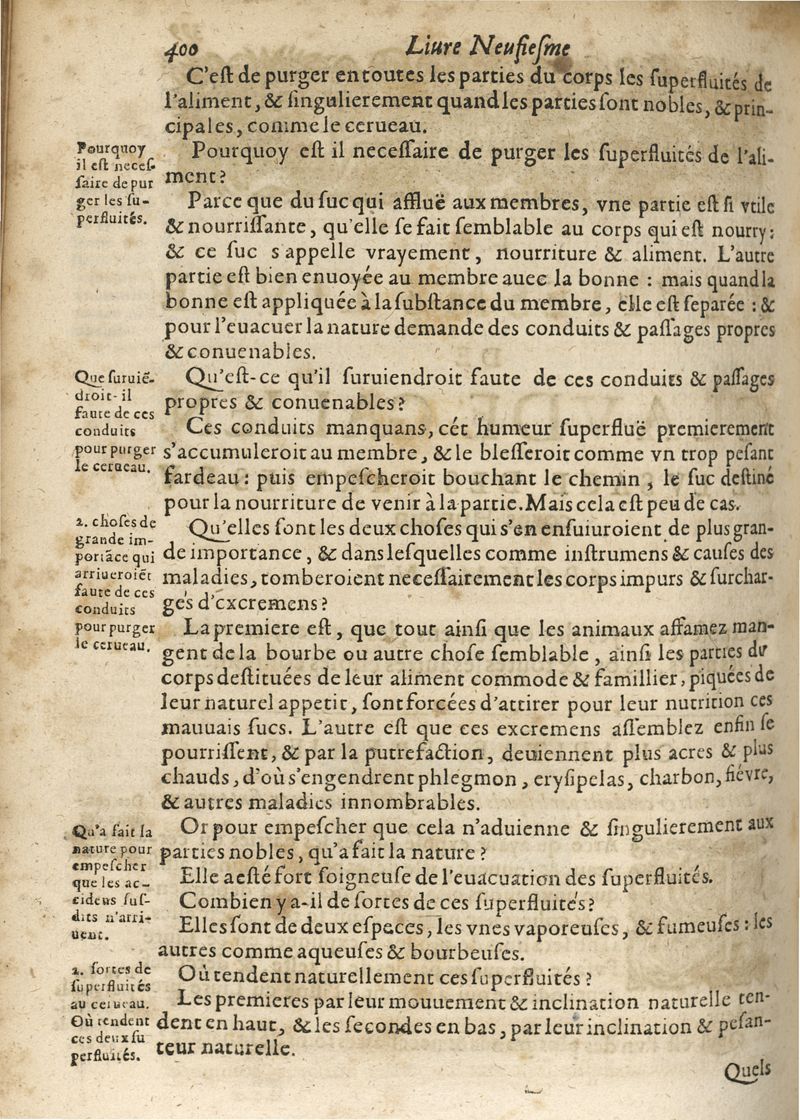 400 Liure Neufiesme
C'eſt de purger en toutes les parties du corps les ſuperfluités de
l'aliment, & ſingulierement quand les parties ſont nobles, & prin-
cipales, comme le cerueau.
Pourquoy
il eſt neceſ-
ſaire de pur
ger les ſu-
perfluités.
Pourquoy eſt il neceſſaire de purger les ſuperfluités de l'ali-
ment?
Parce que du ſuc qui affluë aux membres, vne partie eſt ſi vtile
& nourriſſante, qu'elle ſe fait ſemblable au corps qui eſt nourry:
& ce ſuc s appelle vrayement, nourriture & aliment. L'autre
partie eſt bien enuoyée au membre auec la bonne : mais quand la
bonne eſt appliquée à la ſubſtance du membre, elle eſt ſeparée : &
pour l'euacuer la nature demande des conduits & paſſages propres
& conuenables.
Que ſuruiẽ-
droit-il
faute de ces
conduits
pour purger
le cerueau.
Qu'eſt-ce qu'il ſuruiendroit faute de ces conduits & paſſages
propres & conuenables?
Ces conduits manquans, cét humeur ſuperfluë premierement
s'accumuleroit au membre, & le bleſſeroit comme vn trop peſant
fardeau: puis empeſcheroit bouchant le chemin, le ſuc deſtiné
pour la nourriture de venir à la partie. Mais cela eſt peu de cas.
2. choſes de
grande im-
portãce qui
arriueroiẽt
faute de ces
conduits
pour purger
le cerueau.
Qu'elles ſont les deux choſes qui s'en enſuiuroient de plus gran-
de importance, & dans leſquelles comme inſtrumens & cauſes des
maladies, tomberoient neceſſairement les corps impurs & ſurchar-
gés d'excremens?
La premiere eſt, que tout ainſi que les animaux affamez man-
gent de la bourbe ou autre choſe ſemblable, ainſi les parties du
corps deſtituées de leur aliment commode & famillier, piquées de
leur naturel appetit, ſont forcées d'attirer pour leur nutrition ces
mauuais ſucs. L'autre eſt que ces excremens aſſemblez enfin ſe
pourriſſent, & par la putrefaction, deuiennent plus acres & plus
chauds, d'où s'engendrent phlegmon, eryſipelas, charbon, fiévre,
& autres maladies innombrables.
Qu'a fait la
nature pour
empeſcher
que les ac-
cidens ſuſ-
dits n'arri-
uent.
Or pour empeſcher que cela n'aduienne & ſingulierement aux
parties nobles, qu'a fait la nature?
Elle a eſté fort ſoigneuſe de l'euacuation des ſuperfluités.
Combien y a-il de ſortes de ces ſuperfluités?
Elles ſont de deux eſpeces, les vnes vaporeuſes, & fumeuſes : les
autres comme aqueuſes & bourbeuſes.
2. ſortes de
ſuperfluités
au cerueau.
Où tendent
ces deux ſu
perfluités.
Où tendent naturellement ces ſuperfluités?
Les premieres par leur mouuement & inclination naturelle ten-
dent en haut, & les ſecondes en bas, par leur inclination & peſan-
teur naturelle.
Quels